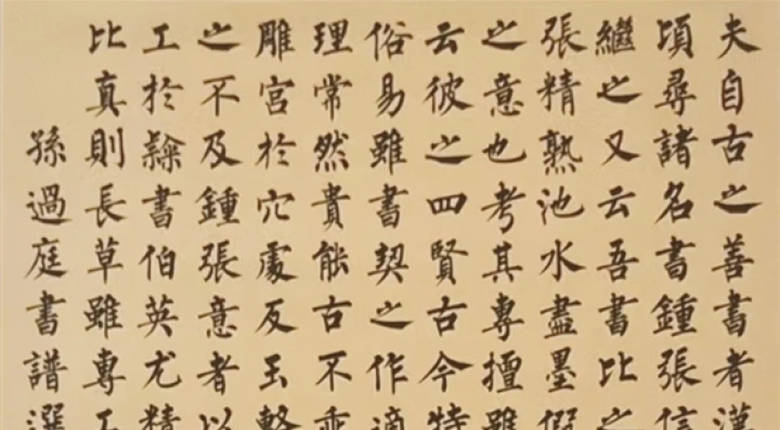 夫自古之善書者漢
頃尋諸名書鍾張信
繼之又云吾書比之
張精熟池水盡墨假
之意也考其專擅雖
云彼之四賢古今特
俗易雖書契之作適
理常然貴能古不乖
雕宮於穴處反玉輅
之不及鍾張意者以
工於隸書伯英尤精
比真則長草雖專工
孫過庭書譜選